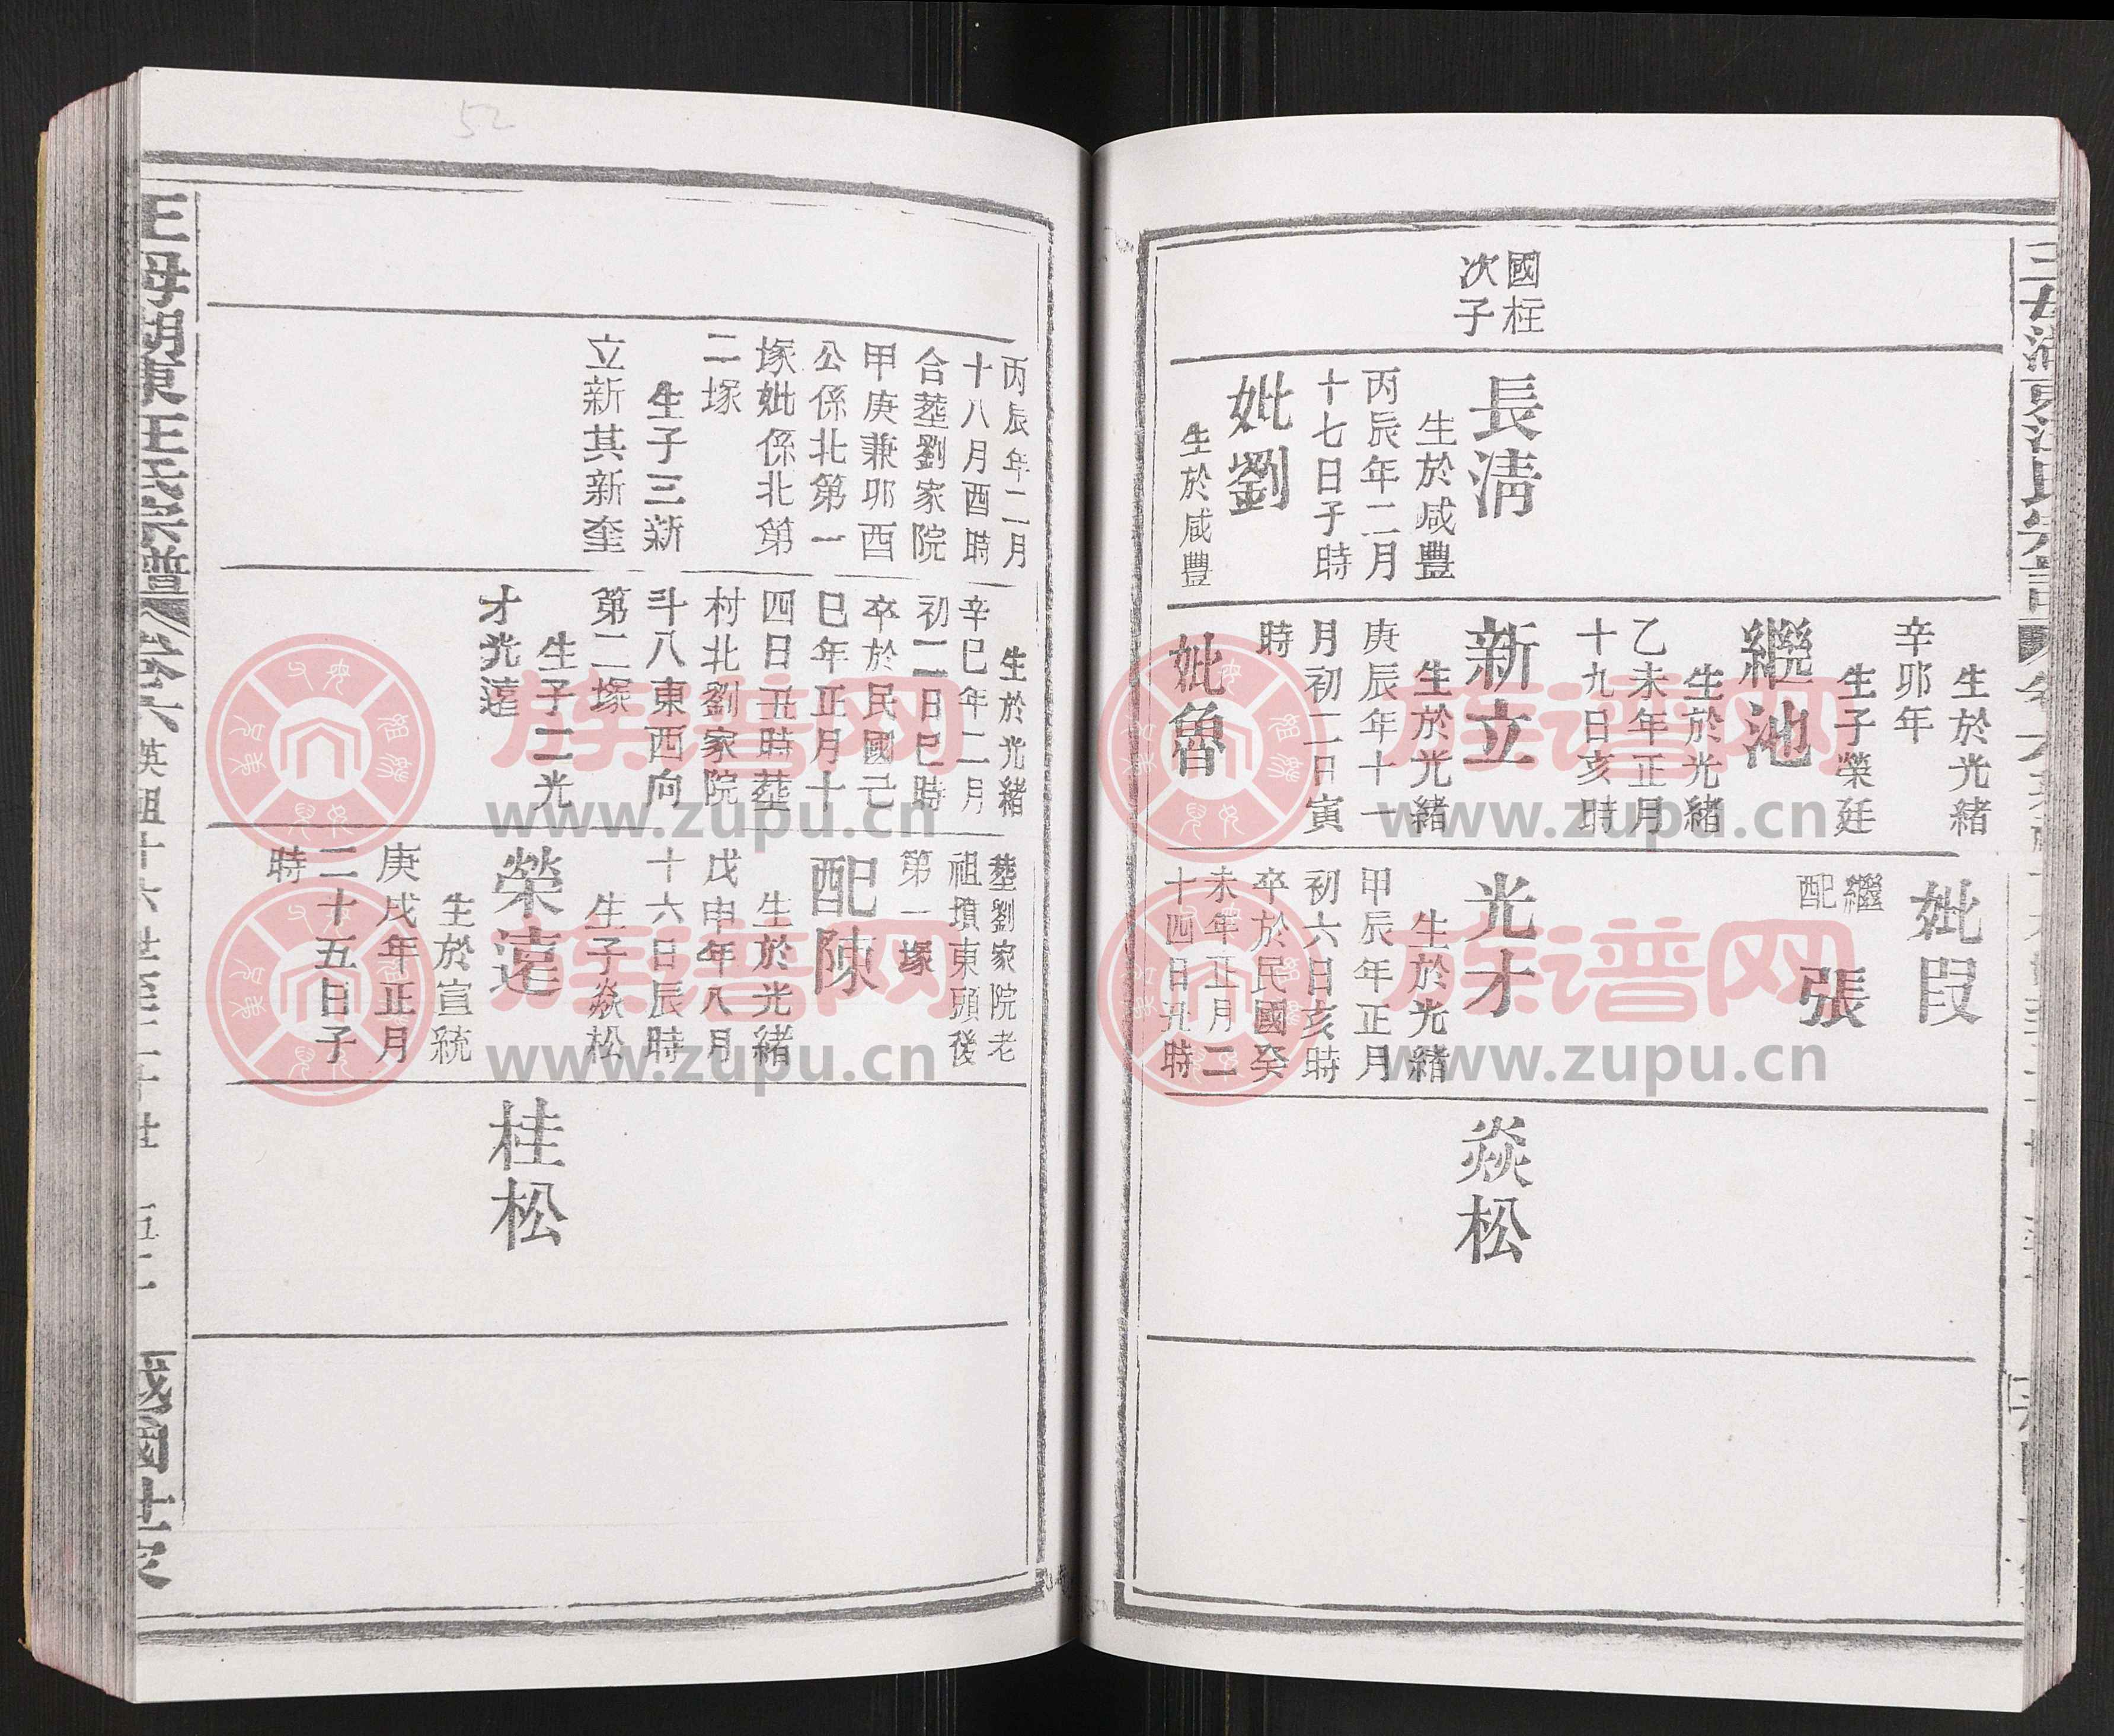 52
國柱
次子
長清
生於咸豐
丙辰年二月
十七日子時
妣劉
生於咸豐
生於光緒
辛卯年
生子榮廷
繼池
生於光緒
乙未年正月
十九日亥時
新立
生於光緒
庚辰年十一
月初二日寅
時
妣魯
妣段
繼
配
張
光才
生於光緒
甲辰年正月
初六日亥時
卒於民國癸
未年正月二
十四日丑時
焱松
丙辰年二月
十八月酉時
合塟劉家院
甲庚兼卯酉
公係北第一
塚妣係北第
二塚
生子三新
立新其新奎
生於光緒
辛巳年二月
初二日巳時
卒於民國己
巳年正月十
四日丑時塟
村北劉家院
斗八東西向
第二塚
生子二光
才光遠
塟劉家院老
祖墳東頭後
第一塚
配陳
生於光緒
戊申年八月
十六日辰時
生子焱松
榮遠
生於宣統
庚戌年正月
二十五日子
時
桂松
王母湖東汪氏宗譜
卷六
英祖十六世至二十世
五十二
越國世家
族谱网
www.zupu.cn
族谱网
www.zupu.cn
族谱网
www.zupu.cn
族谱网
www.zupu.cn